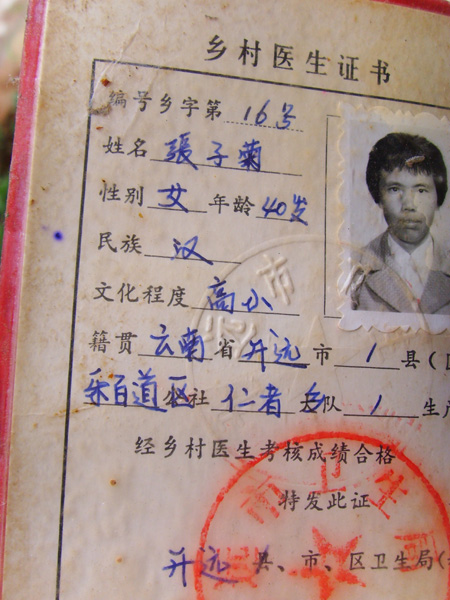 乡村医生证书
编号乡字第 16号
姓名 張子菊
性别 女 年龄 40岁
民族 汉
文化程度 高小
籍贯 云南 省 开远 市 1 县(
乐百道区 社 仁者乡 队 1 生产
经乡村医生考核成绩合格
特发此证
开远 县、市、区卫生局(
市卫生局
市